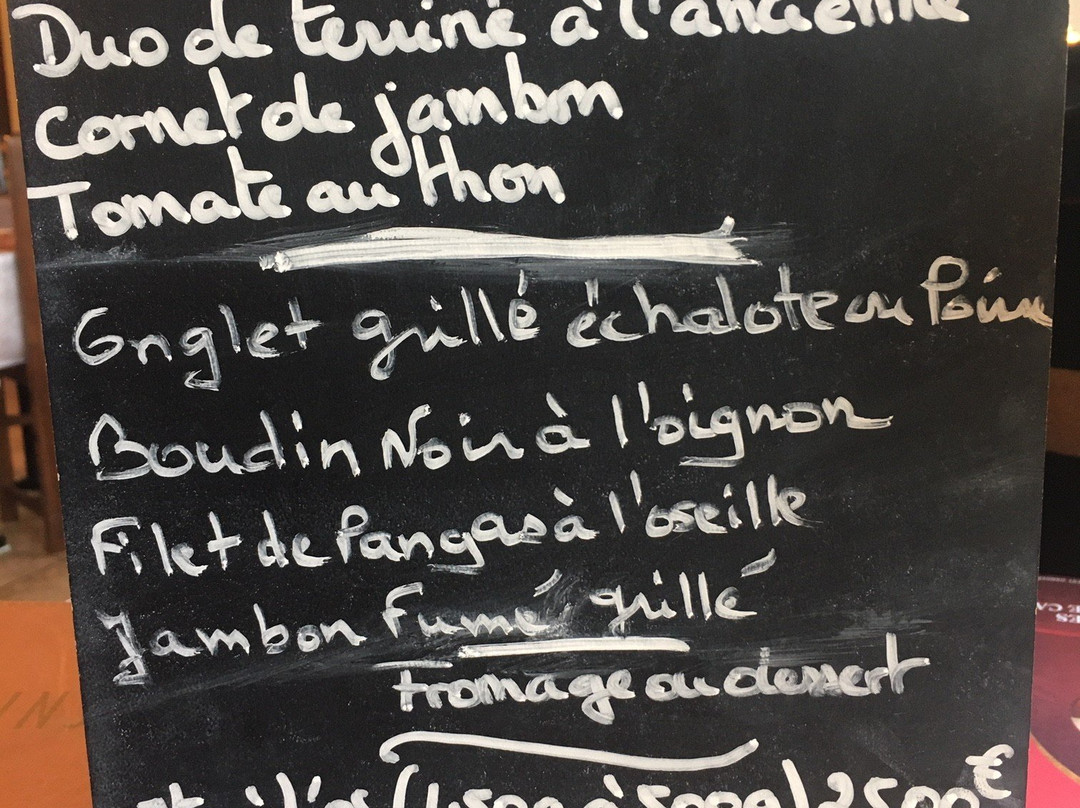 Duo de terrine à l'ancienne
Cornet de jambon
Tomate au thon
Onglet grillé échalote ou Poivre
Boudin Noir à l'oignon
Filet de Pangas à l'oseille
Jambon Fumé grillé
Fromage ou dessert
à l'os (450g à 500g) 25.00€